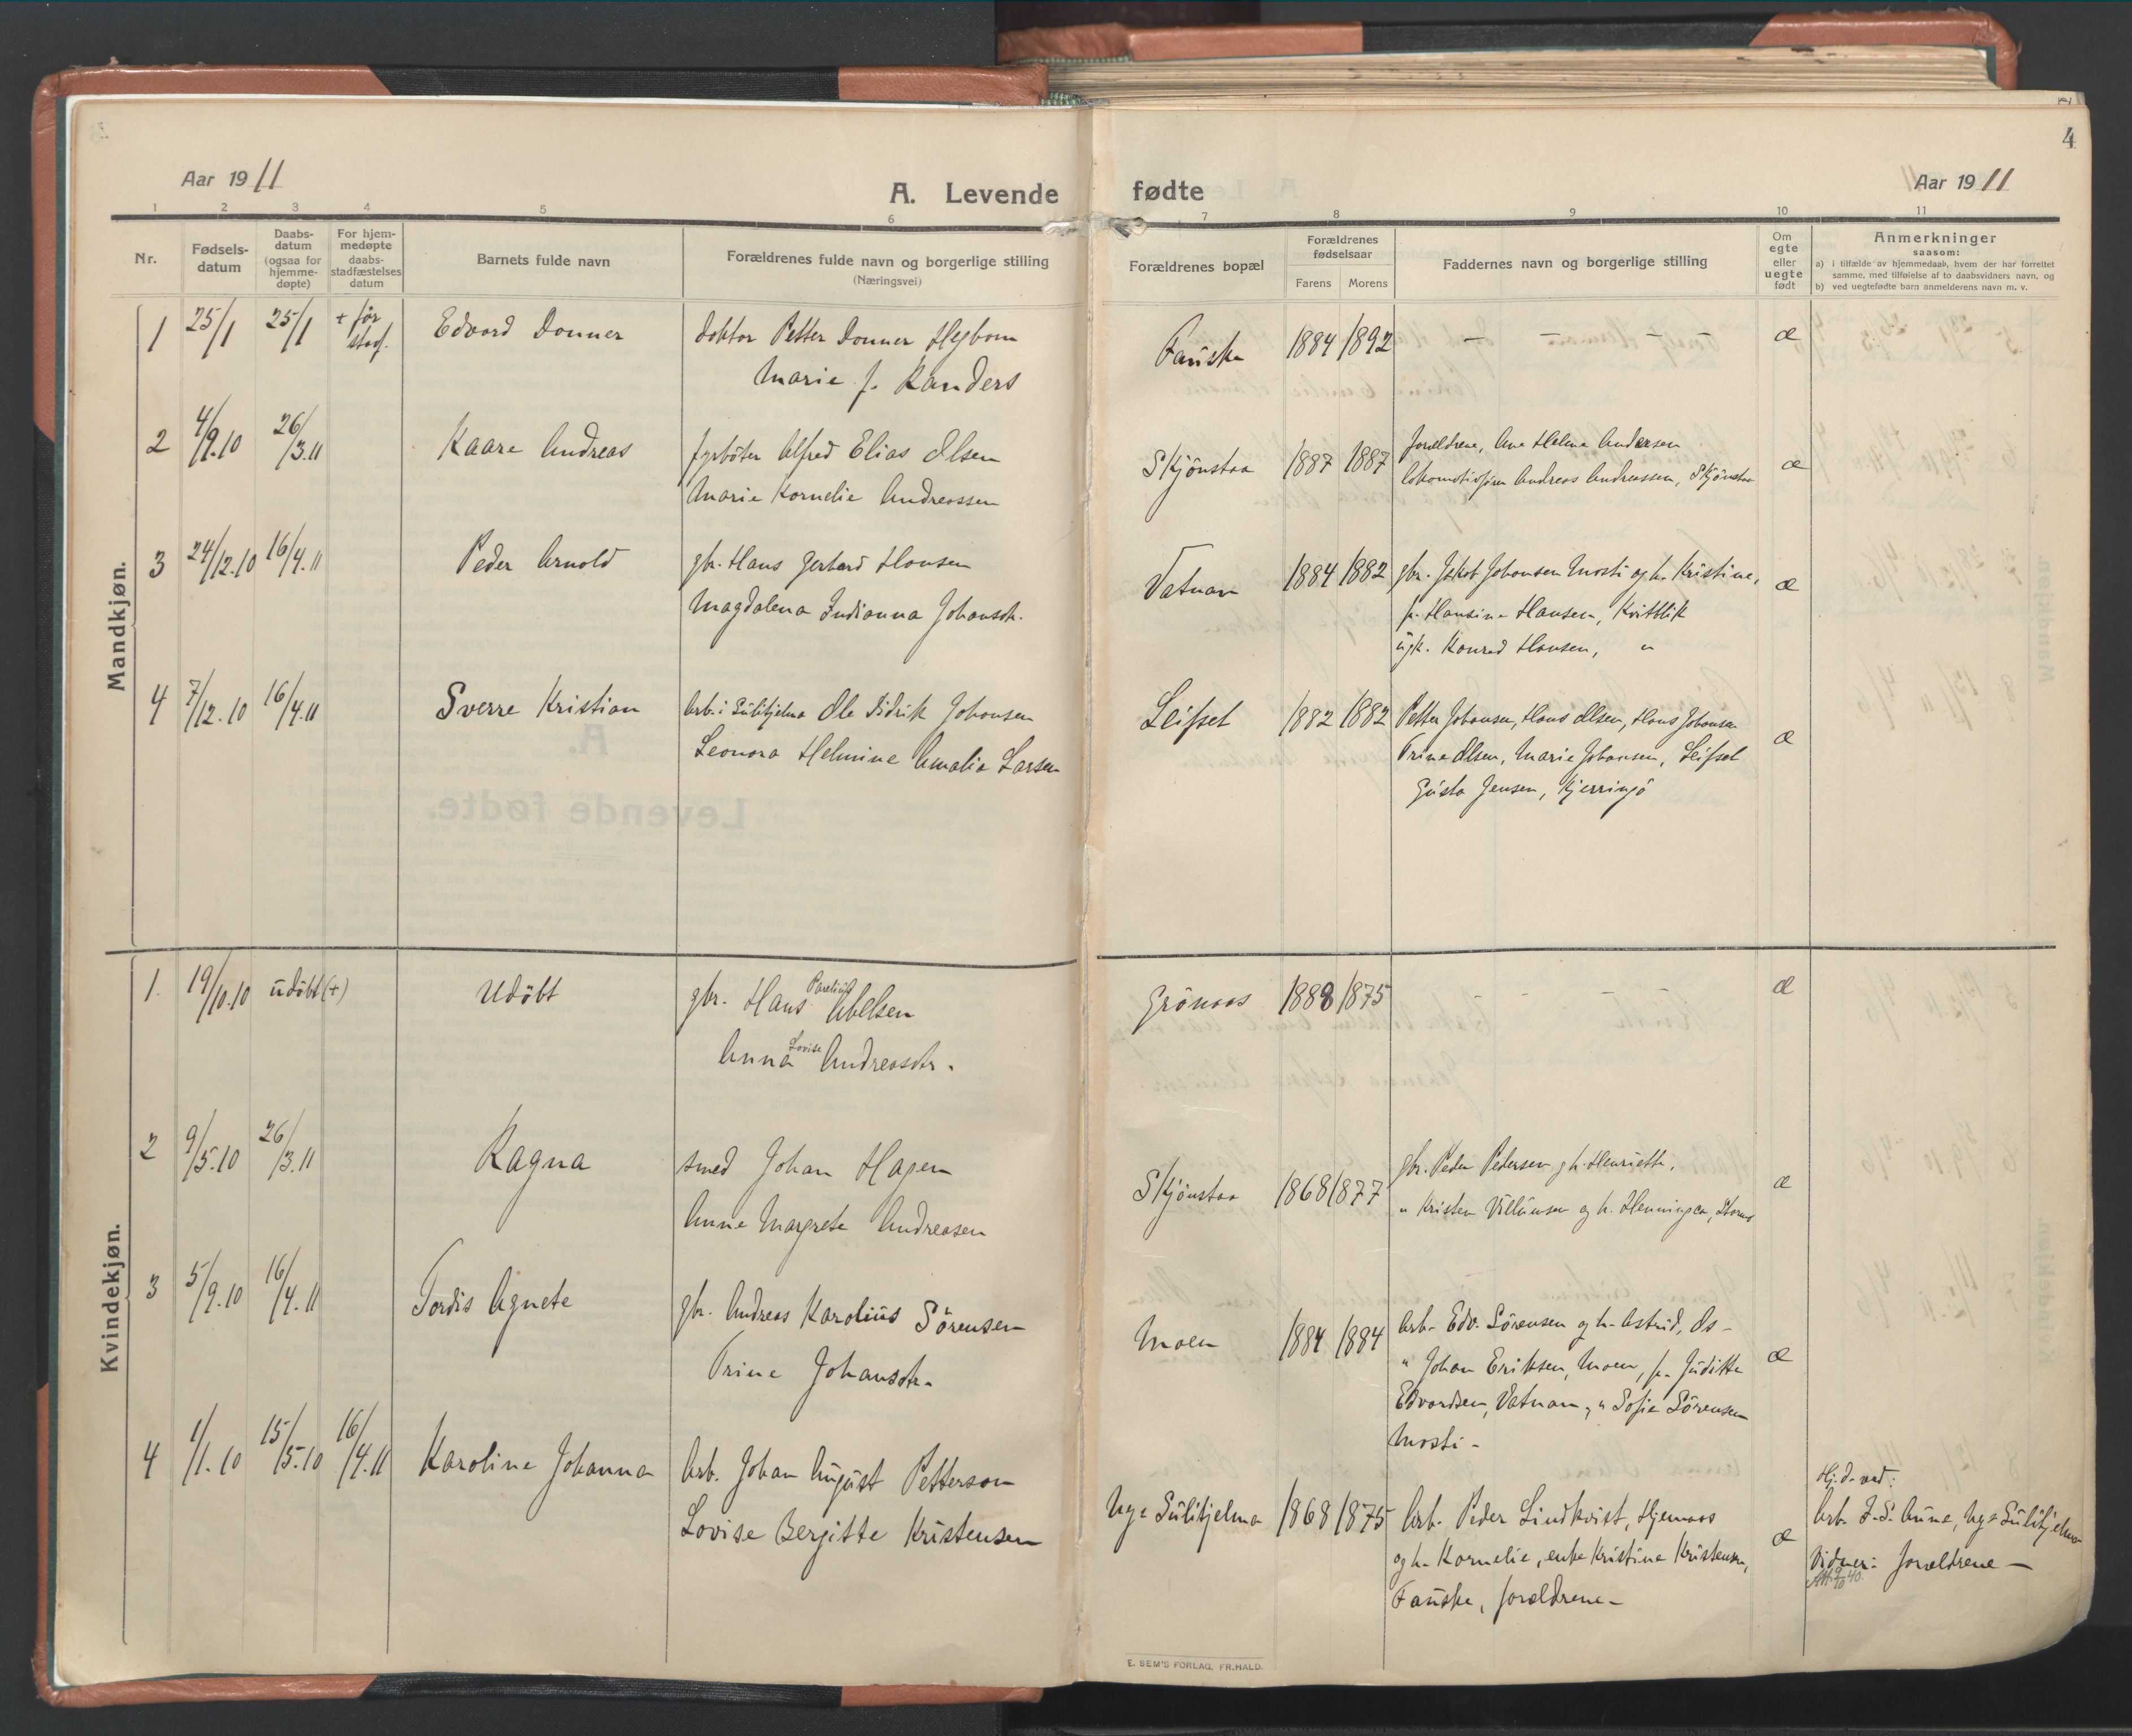 4
Aar 1911
A. Levende fødte
Aar 1911
1 2 3 4 5 6 7 8 9 10 11
Nr.
Fødsels-
datum
Daabs-
datum
(ogsaa for
hjemme-
døpte)
For hjem-
medøpte
daabs-
stadfæstelses
datum
Barnets fulde navn
Forældrenes fulde navn og borgerlige stilling
(Næringsvei)
Forældrenes bopæl
Forældrenes
fødselsaar
Farens Morens
Faddernes navn og borgerlige stilling
Om
egte
eller
uegte
født
Anmerkninger
saasom:
a) i tilfælde av hjemmedaab, hvem der har forrettet
samme, med tilføielse af to daabsvidners navn, og
b) ved uegtefødte barn anmelderens navn m. v.
Mandkjøn.
1 25/1 25/1 + før
stadf.
Edvard Donner
doktor Petter Donner Hegbom
Marie f. Randers
Fauske 1884 1892 — — — æ
2 4/9.10 26/3.11 Kaare Andreas
fyrböter Alfred Elias Olsen
Marie Kornelie Andreassen
Skjönstaa 1887 1887
forældrene, Ane Helene Andersen
lokomotivförer Andreas Andreassen, Skjönstaa
æ
3 24/12.10 16/4.11 Peder Arnold
gbr. Hans Gerhard Hansen
Magdalena Indianna Johansdtr.
Vatnan 1884 1882
gbr. Jakob Johansen Mosti og h. Kristine,
p. Hansine Hansen, Kvitblik
ugk. Konrad Hansen, "
æ
4 7/12.10 16/4.11 Sverre Kristian
Arb. i Sulitjelma Ole Didrik Johansen
Leonora Helmine Amalia Larsen
Leifset 1882 1882
Petter Johansen, Hans Olsen, Hans Johansen
Trine Olsen, Marie Johansen, Leifset
Gusta Jensen, Kjerringö
æ
Kvindekjøn.
1. 19/10.10 udöbt (+) Udöbt
gbr. Hans Parelius Abelsen
Anna Lovise Andreasdtr.
Grönaas 1888 1875 — — — æ
2 9/5.10 26/3.11 Ragna
smed Johan Hagen
Anne Margrete Andreasen
Skjönstaa 1868 1877
gbr. Peder Pedersen og h. Henriette,
" Kristen Villumsen og h. Henningca,
æ
3 5/9.10 16/4.11 Tordis Agnete
gbr. Andreas Karolius Sörensen
Trine Johansdtr.
Moen 1884 1884
Arb. Edv. Sörensen og h. Astrid, Os -
" Johan Eriksen, Moen, p. Juditte
Edvardsen, Vatnan, " Sofie Sörensen
Mosti -
æ
4 1/1.10 15/5.10 16/4.11 Karoline Johanna
Arb. Johan August Petterson
Lovise Bergitte Kristensen
Nye Sulitjelma 1868 1875
Arb. Peder Lindkvist, Hjemaas
og h. Kornelie, enke Kristine Kristensen,
Fauske, forældrene -
æ
Hj. d. ved:
Arb. J. S. Aune, Nye Sulitjelma
Vidner: forældrene —
Att. 9/10 40.
E. SEM'S FORLAG, FR.HALD.